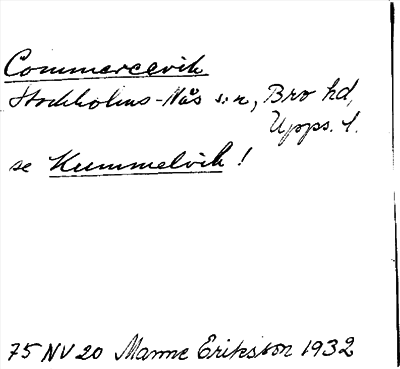 Commercevik
Stockholms-Näs s:n, Bro hd,
Upps. l.
se Kummelvik!
75 NV 20 Manne Eriksson 1932